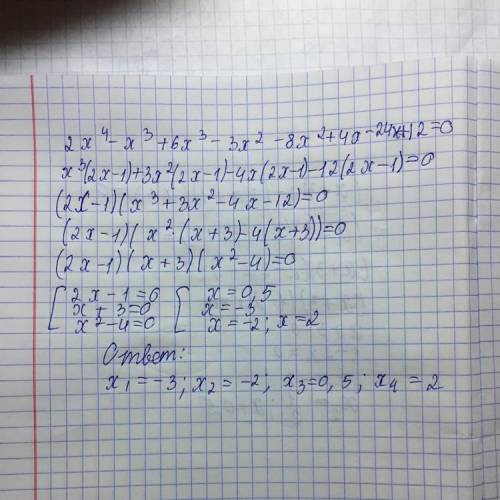 2x⁴ - x³ + 6x³ - 3x² - 8x² + 4x - 24x + 12 = 0
x³(2x-1)+3x²(2x-1)-4x(2x-1)-12(2x-1)=0
(2x-1)(x³+3x²-4x-12)=0
(2x-1)(x²(x+3)-4(x+3))=0
(2x-1)(x+3)(x²-4)=0
[ 2x-1=0 [ x=0,5
x+3=0 x=-3
x²-4=0 x=-2; x=2
Ответ:
x₁=-3; x₂=-2; x₃=0,5; x₄=2